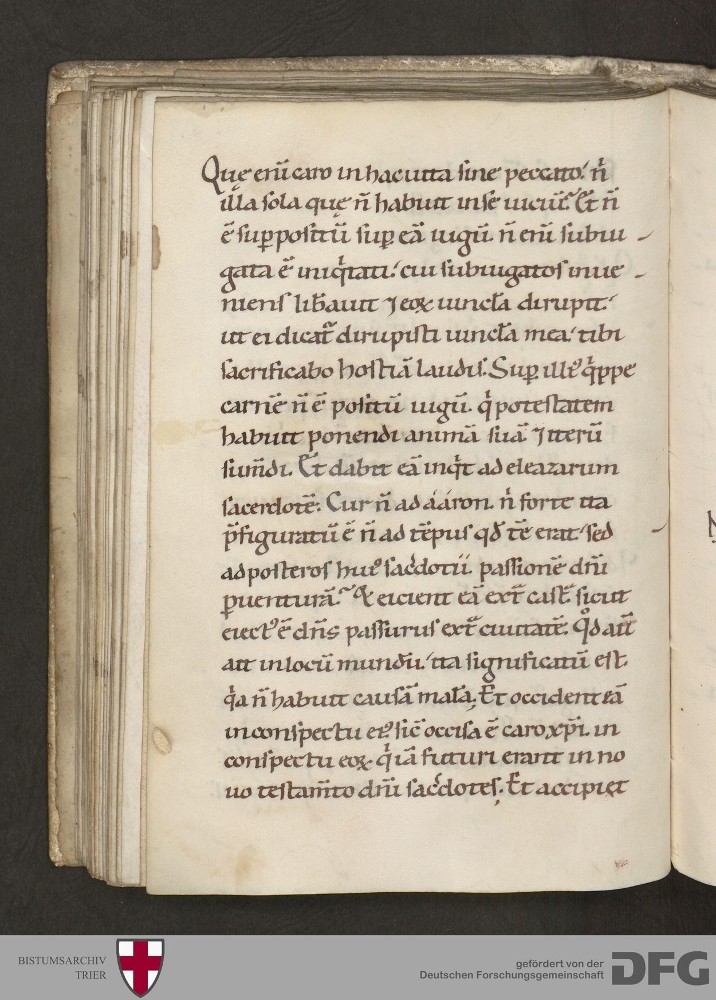 Quę eni̅ caro in hac uita sine peccato? n̅
illa sola quę n̅ habuit in se uiciu̅? Et n̅
e̅ sup̲positu̅ sup̲ ea̅ iugu̅. n̅ eni̅ subiu
gata e̅ iniqͥtati. cui subiugatos inue
niens lib̅auit ⁊ eoꝝ uincl̅a dirupit.
ut ei dicat᷑ dirupisti uincl̅a mea. tibi
sacrificabo hostia̅ laudis. Sup̲ illiꝰ qͥppe
carne̅ n̅ e̅ positu̅ iugu̅. qͥ potestatem
habuit ponendi anima̅ sua̅ ⁊ iteru̅
sum̅di. Et dabit ea̅ inqͥt ad eleazarum
sacerdote̅. Cur n̅ ad ááron. nͥ forte ita
p̅figuratu̅ e̅ n̅ ad te̅pus qd̅ tc̅ erat. sed
ad posteros huiꝰ sac̅dotii. passione̅ dn̅i
p̲uentura̅. & eicient ea̅ ext̅ cast̅. sicut
eiectꝰ e̅ dn̅s passurus ext̅ ciuitate̅. Qd̊ aut̅
ait in locu̅ mundu̅. ita significatu̅ est.
qͥa n̅ habuit causa̅ mala̅. Et occident ea̅
in conspectu eiꝰ. sic̅ occisa e̅ caro xp̅i. in
conspectu eoꝝ qͥ ia̅ futuri erant in no
uo testam̅to dn̅i sac̅dotes. Et accipiet
BISTUMSARCHIV
TRIER
gefördert von der
Deutschen Forschungsgemeinschaft
DFG